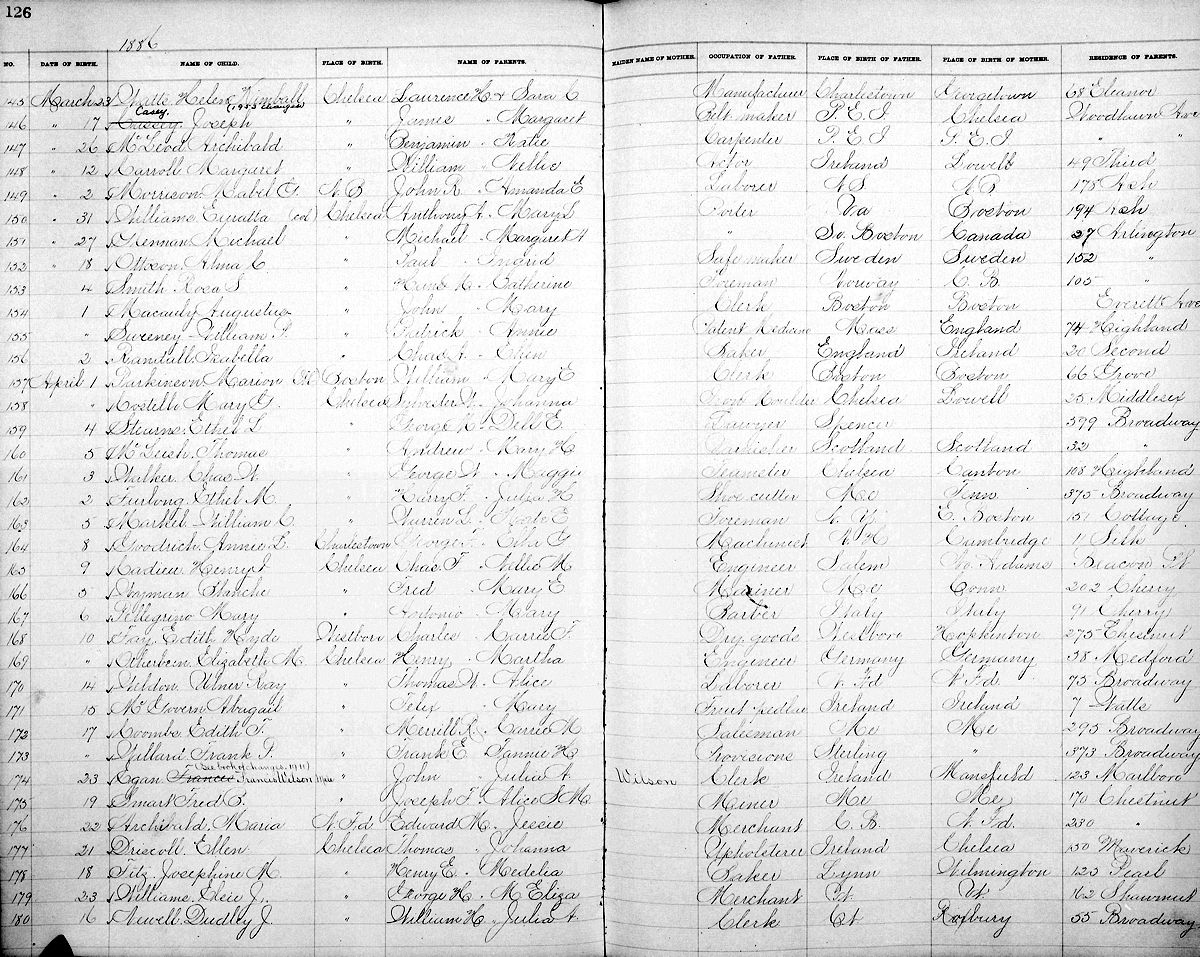 126
1886
NO. DATE OF BIRTH. NAME OF CHILD. PLACE OF BIRTH. NAME OF PARENTS. MAIDEN NAME OF MOTHER. OCCUPATION OF FATHER. PLACE OF BIRTH OF FATHER. PLACE OF BIRTH OF MOTHER. RESIDENCE OF PARENTS.
145 March 23 Helen Kimball Chelsea Laurence H & Sara C Manufacturer Charlestown Georgetown 68 Eleanor
Casey. (1953 changes
146 " 17 Cassey. Joseph " James " Margaret Belt maker P.E.I Chelsea Woodlawn Ave
147 " 26 McLeod Archibald " Benjamin " Katie Carpenter P.E.I P.E.I " "
148 " 12 Carroll Margaret " William " Nellie Actor Ireland Lowell 49 Third
149 " 2 Morrison Mabel G. N.B John R " Amanda E Laborer NS NB 175 Ash
150 " 31 Williams (col) Chelsea Anthony A " Mary L Porter Va Boston 194 Ash
151 " 27 Michael " Michael " Margaret A " So. Boston Canada 27 Arlington
152 " 18 Ottoson Alma C. " Paul " Ingrid Safe maker Sweden Sweden 152 "
153 4 Smith Rosa S " " Catherine Foreman Norway C.B. 105 "
154 1 Macauly Augustus " John " Mary Clerk Boston Boston Everett Ave
155 " Sweeney William P. " Patrick " Annie Patent Medicine Mass England 74 Highland
156 2 Randall Isabella " Chas A " Ellen Baker England Ireland 20 Second
157 April 1 Parkinson Marion Boston William " Mary E Clerk Boston Boston 66 Grove
158 " Costello Mary G. Chelsea Sylvester " Johanna Iron Moulder Chelsea Lowell 25 Middlesex
159 4 Stearns Ethel L " George H " Dell E. Lawyer Spencer 599 Broadway
160 5 McLeish Thomas " Andrew " Mary H Scotland Scotland 32 "
161 3 Walker Chas. " George " Maggie Teamster Chelsea Canton 108 Highland
162 2 Furbong Ethel M. " Harry F. " Julia H Shoe cutter Me Tenn 375 Broadway
163 5 William C. " Warren L. " E Foreman N.Y. E. Boston 151 Cottage
164 8 Goodrich Annie L. Charlestown George " G Machinist N H Cambridge 1
165 9 Henry Chelsea Chas. F " Nellie M Engineer Salem No. Adams Beacon St
166 5 Wayman Blanche " Fred " Mary E Mariner Me Conn 202 Cherry
167 6 Pellegrino Mary " Antonio " Mary Barber Italy Italy 91 Cherry
168 10 Fay Edith Hyde Westboro Charles " Carrie F. Dry goods Westboro Hopkinton 275 Chestnut
169 " Otherbein Elizabeth M. Chelsea Henry " Martha Engineer Germany Germany 38 Medford
170 14 Weldon Ray " Thomas " Alice Laborer N.Fd N.Fd 75 Broadway
171 15 McGovern Abagail " Felix " Mary Fruit pedlar Ireland Ireland 7 Watts
172 17 Coombs Edith F. " Merrill " Carrie M Salesman Me Me 295 Broadway
173 " Willard Frank F. " Frank E " Fannie H Provisions Sterling " 373 Broadway
(See book of changes 1911)
74 23 Egan Frances Francis Wilson Male " John " Julia A Wilson Clerk Ireland Mansfield 123 Marlboro
175 19 Smart Fred B. " Joseph F. " Alice M Miner Me Me 170 Chestnut
176 22 Archibald Maria N.Fd Edward M. " Jessie Merchant C.B. N.Fd. 230 "
177 21 Driscoll Ellen Chelsea Thomas " Johanna Upholsterer Ireland Chelsea 150 Maverick
178 18 Fitz Josephine M. " Henry E. " Medelia Baker Lynn Wilmington 123 Pearl
179 23 Williams Elsie J. " George H. " M Eliza Merchant Vt. Vt 162 Shawmut
180 16 Newell Dudley J " William H " Julia A. Clerk Ct Roxbury 55 Broadway